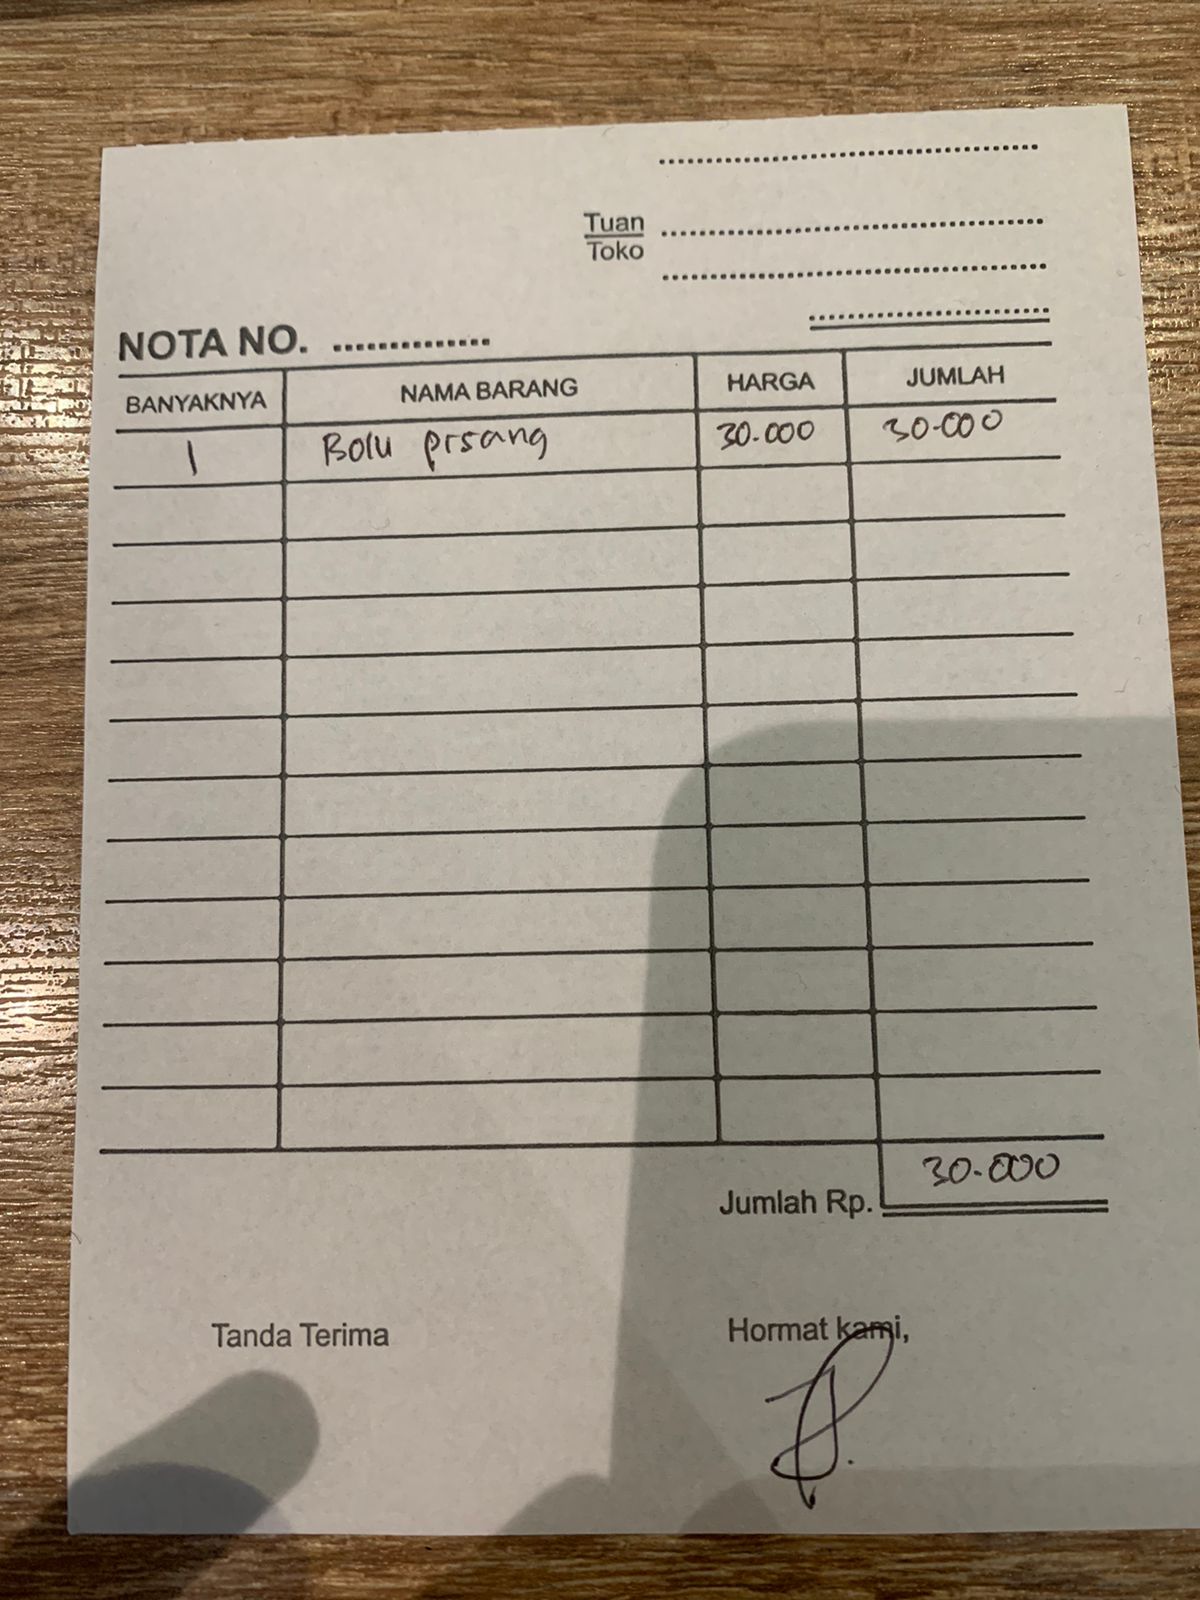 Tuan
Toko
NOTA NO. ..............
BANYAKNYA NAMA BARANG HARGA JUMLAH
1 Bolu pisang 30.000 30.000
Jumlah Rp. 30.000
Tanda Terima Hormat kami,